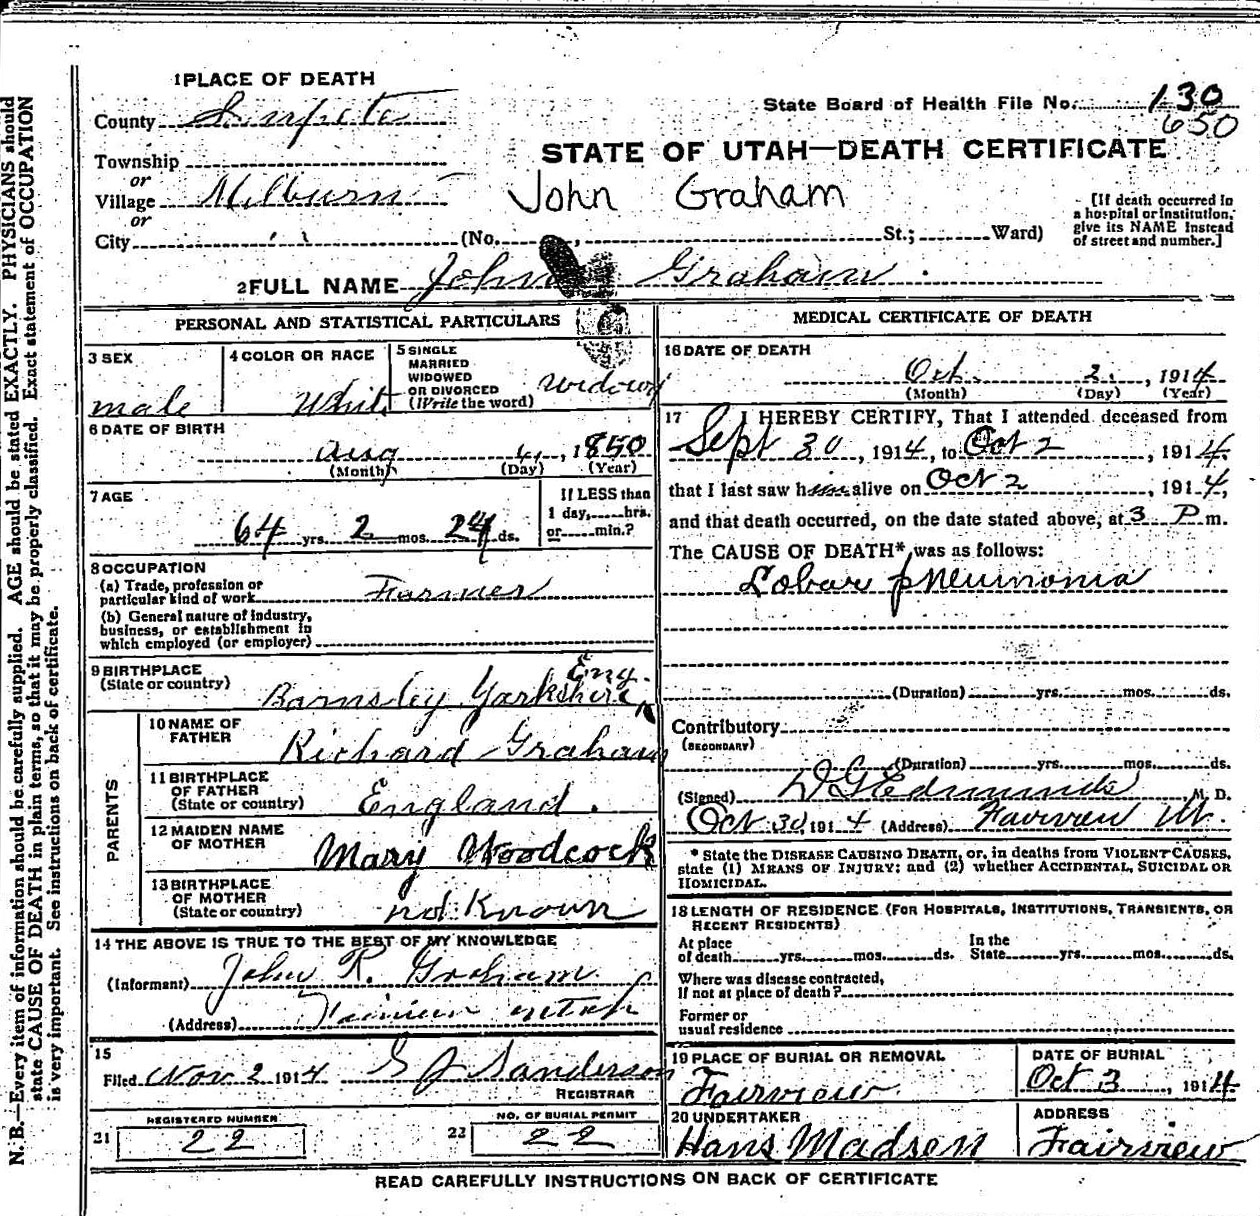 1 PLACE OF DEATH
County Sanpete
State Board of Health File No. 130
650
STATE OF UTAH—DEATH CERTIFICATE
Township
or
Village Milburn
John Graham
or
City (No. , St.; Ward)
[If death occurred in
a hospital or institution,
give its NAME instead
of street and number.]
2 FULL NAME John Graham
PERSONAL AND STATISTICAL PARTICULARS
3 SEX
male
4 COLOR OR RACE
White
5 SINGLE
MARRIED
WIDOWED
OR DIVORCED
(Write the word)
widowed
6 DATE OF BIRTH
Aug 4, 1850
(Month) (Day) (Year)
7 AGE
64 yrs. 2 mos. 24 ds.
If LESS than
1 day, hrs.
or min.?
8 OCCUPATION
(a) Trade, profession or
particular kind of work Farmer
(b) General nature of industry,
business, or establishment in
which employed (or employer)
9 BIRTHPLACE
(State or country)
Barnsley Yorkshire Eng.
PARENTS
10 NAME OF
FATHER
Richard Graham
11 BIRTHPLACE
OF FATHER
(State or country)
England.
12 MAIDEN NAME
OF MOTHER
Mary Woodcock
13 BIRTHPLACE
OF MOTHER
(State or country)
not Known
14 THE ABOVE IS TRUE TO THE BEST OF MY KNOWLEDGE
(Informant) John R. Graham
(Address) utah
15
Filed Nov 2 1914 Sanderson
REGISTRAR
REGISTERED NUMBER
21 22
NO. OF BURIAL PERMIT
22 22
MEDICAL CERTIFICATE OF DEATH
16 DATE OF DEATH
Oct. 2, 1914
(Month) (Day) (Year)
17 I HEREBY CERTIFY, That I attended deceased from
Sept 30, 1914, to Oct 2, 1914.
that I last saw him alive on Oct 2, 1914,
and that death occurred, on the date stated above, at 3 P m.
The CAUSE OF DEATH* was as follows:
Lobar pneumonia
(Duration) yrs. mos. ds.
Contributory
(SECONDARY)
(Duration) yrs. mos. ds.
(Signed) Edmunds M. D.
Oct 30, 1914 (Address) Fairview Ut.
* State the DISEASE CAUSING DEATH, or, in deaths from VIOLENT CAUSES,
state (1) MEANS OF INJURY; and (2) whether ACCIDENTAL, SUICIDAL OR
HOMICIDAL.
18 LENGTH OF RESIDENCE (FOR HOSPITALS, INSTITUTIONS, TRANSIENTS, OR
RECENT RESIDENTS)
At place
of death yrs. mos. ds.
In the
State yrs. mos. ds.
Where was disease contracted,
If not at place of death?
Former or
usual residence
19 PLACE OF BURIAL OR REMOVAL
Fairview
DATE OF BURIAL
Oct 3, 1914
20 UNDERTAKER
Hans Madsen
ADDRESS
Fairview
READ CAREFULLY INSTRUCTIONS ON BACK OF CERTIFICATE
N. B.—Every item of information should be carefully supplied. AGE should be stated EXACTLY. PHYSICIANS should
state CAUSE OF DEATH in plain terms, so that it may be properly classified. Exact statement of OCCUPATION
is very important. See instructions on back of certificate.